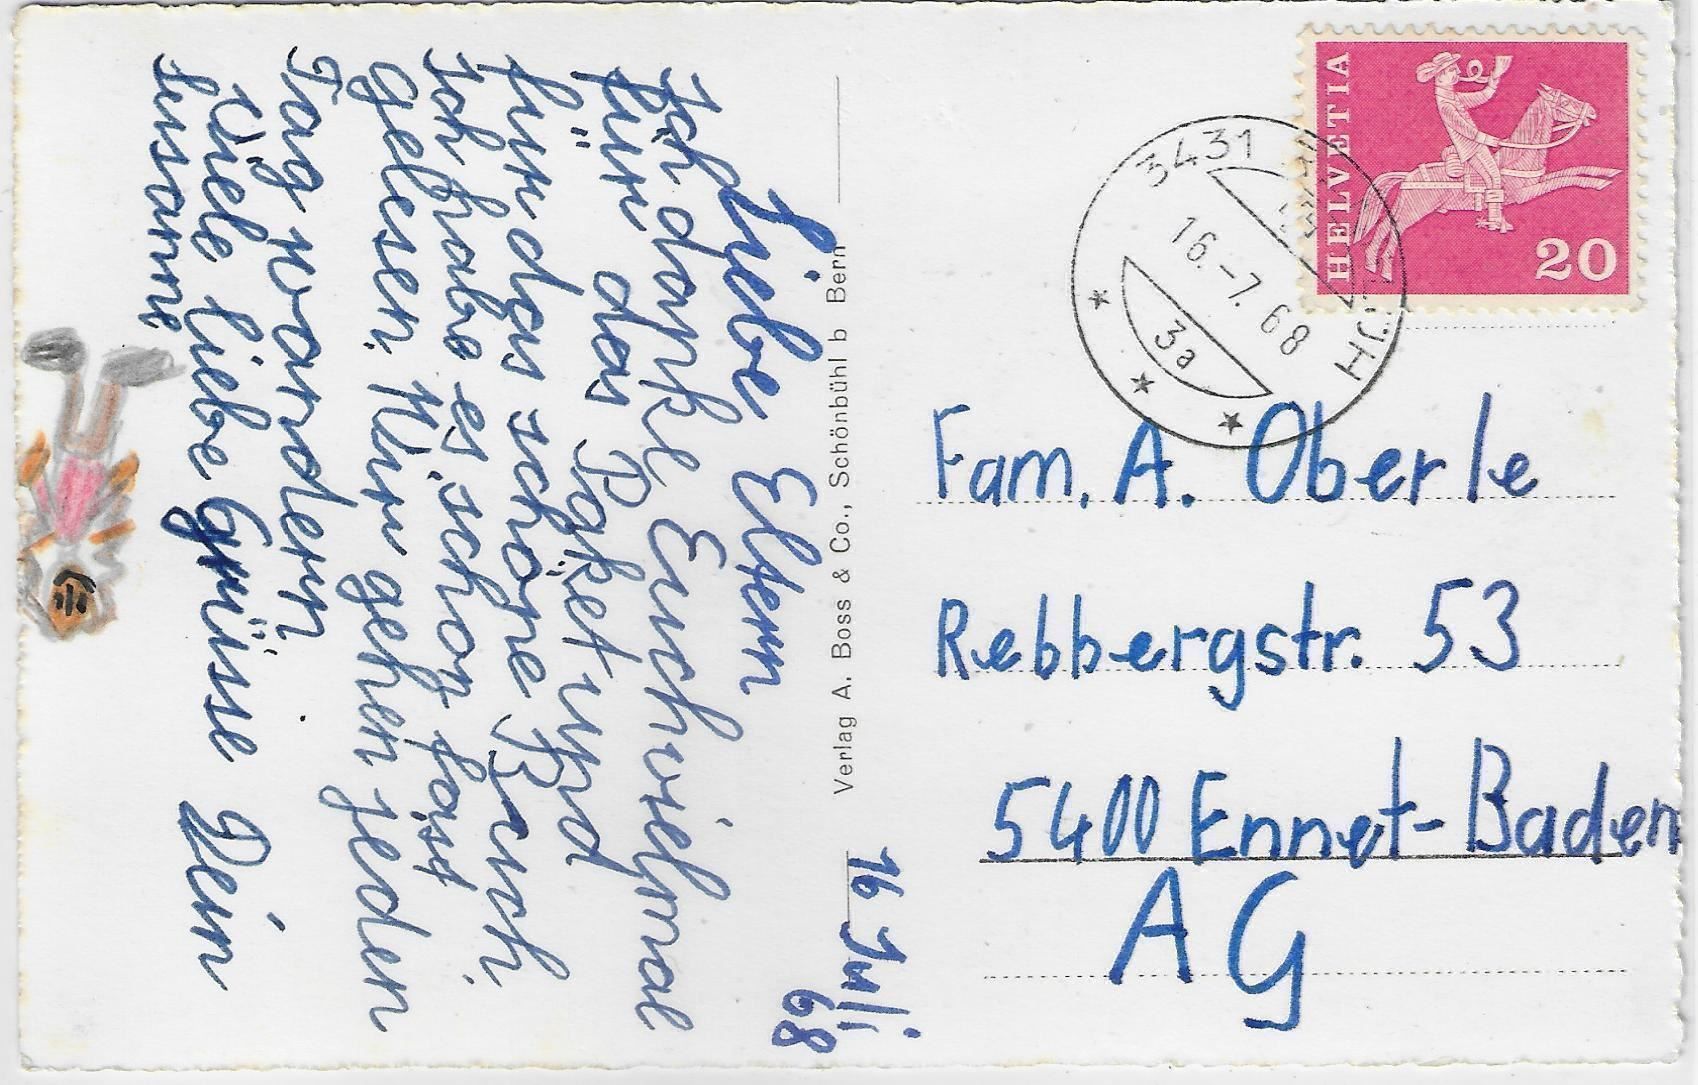 16 Juli
68
Liebe Eltern
Ich danke Euch vielmal
für das Paket und
für das schöne Buch.
Ich habe es schon fast
gelesen. Wir gehen jeden
Tag wandern.
Viele liebe Grüsse Dein
Susanne
Verlag A. Boss & Co., Schönbühl b Bern
HELVETIA
20
3431
16.-7.68
3a
Fam. A. Oberle
Rebbergstr. 53
5400 Ennet-Baden
AG